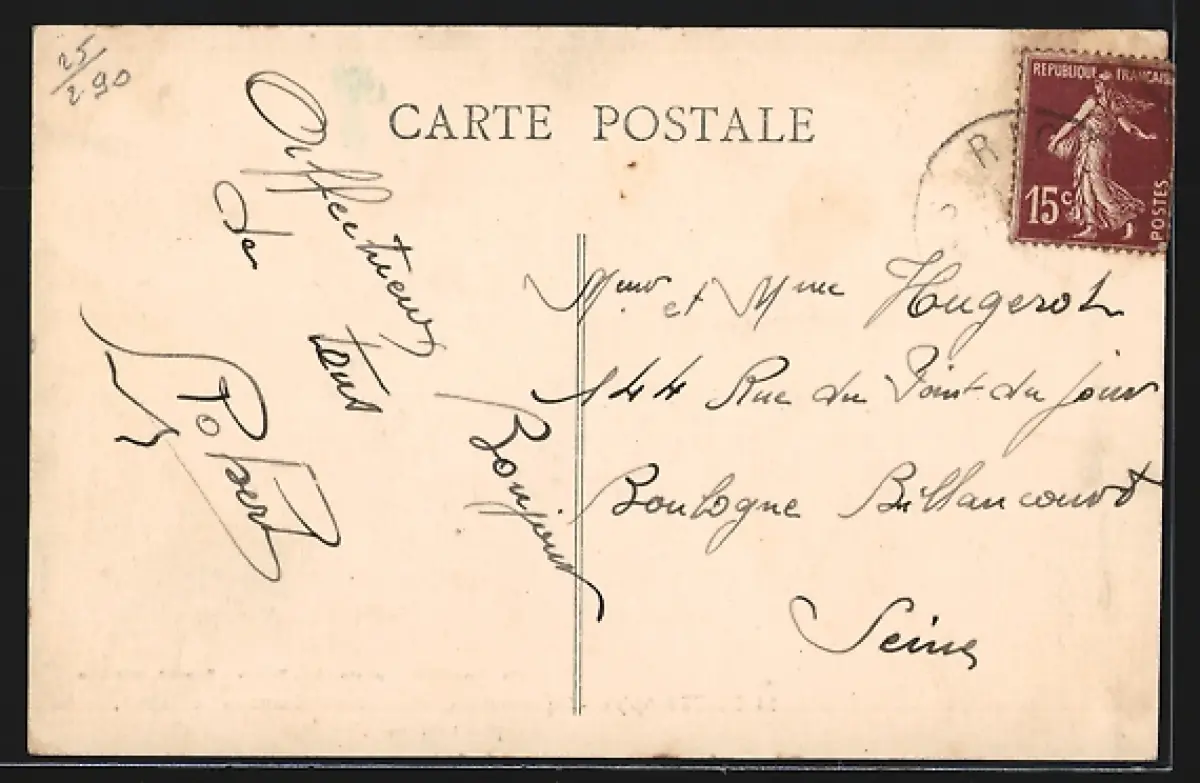 25/290
CARTE POSTALE
REPUBLIQUE FRANCAISE
15c
POSTES
Affectueux
Bonjour
de tous
Robert
Mr et Mme Hugerot
144 Rue du Point du Jour
Boulogne Billancourt
Seine